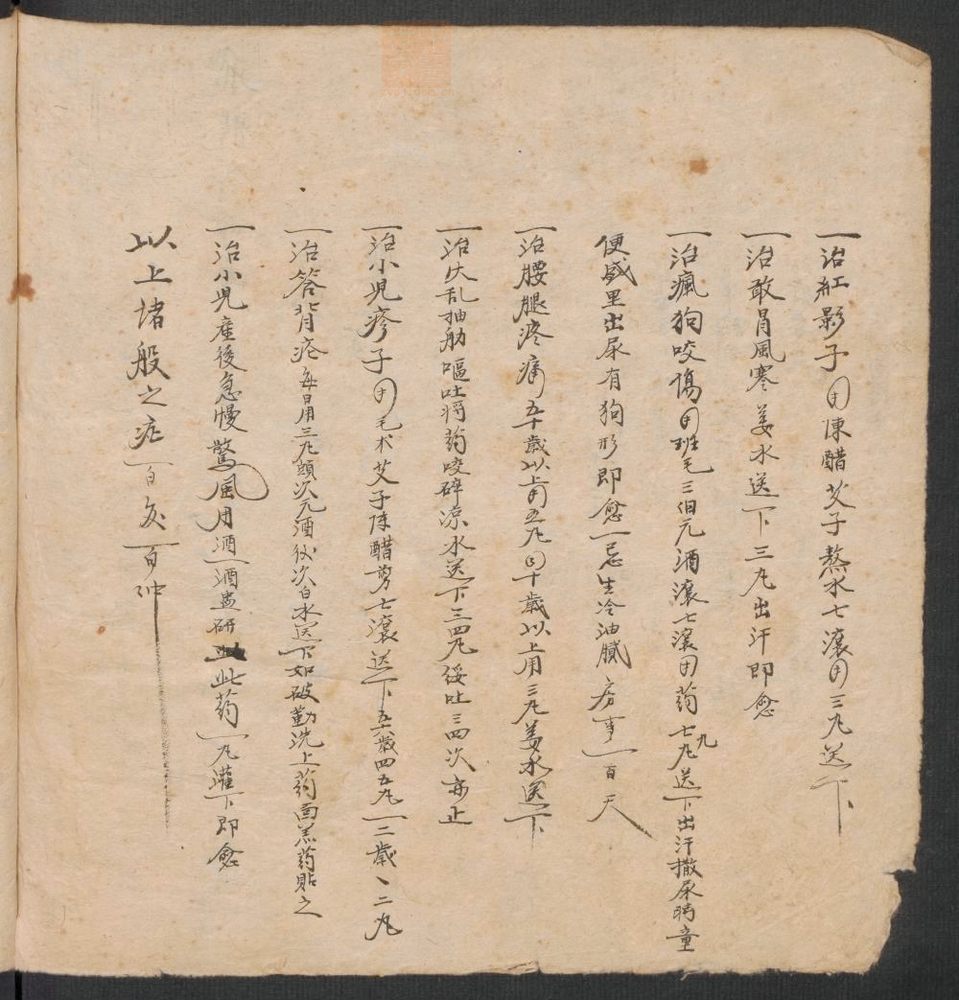 一治紅影子用陳醋艾子熬水七滾用三丸送下
一治敢冐風寒姜水送下三丸出汗即愈
一治瘋狗咬傷用班毛三個元酒滾七滾用药七九丸送下出汗撒尿時童
便盛里出尿有狗形即愈一忌生冷油膩房事一百天
一治腰腿疼痛五十歲以上用五丸四十歲以上用三丸姜水送下
一治火乱抽筋嘔吐将药咬碎凉水送下三四丸綏吐三四次亦止
一治小兒疹子用毛术艾子陳醋剪七滾送下五六歲四五丸一二歲、二丸
一治答背疮每日用三丸頭次元酒後次白水送下如破勤洗上药面羔药貼之
一治小兒産後急慢驚風用酒一酒盅研此药一丸灌下即愈
以上堵般之症百灸百冲